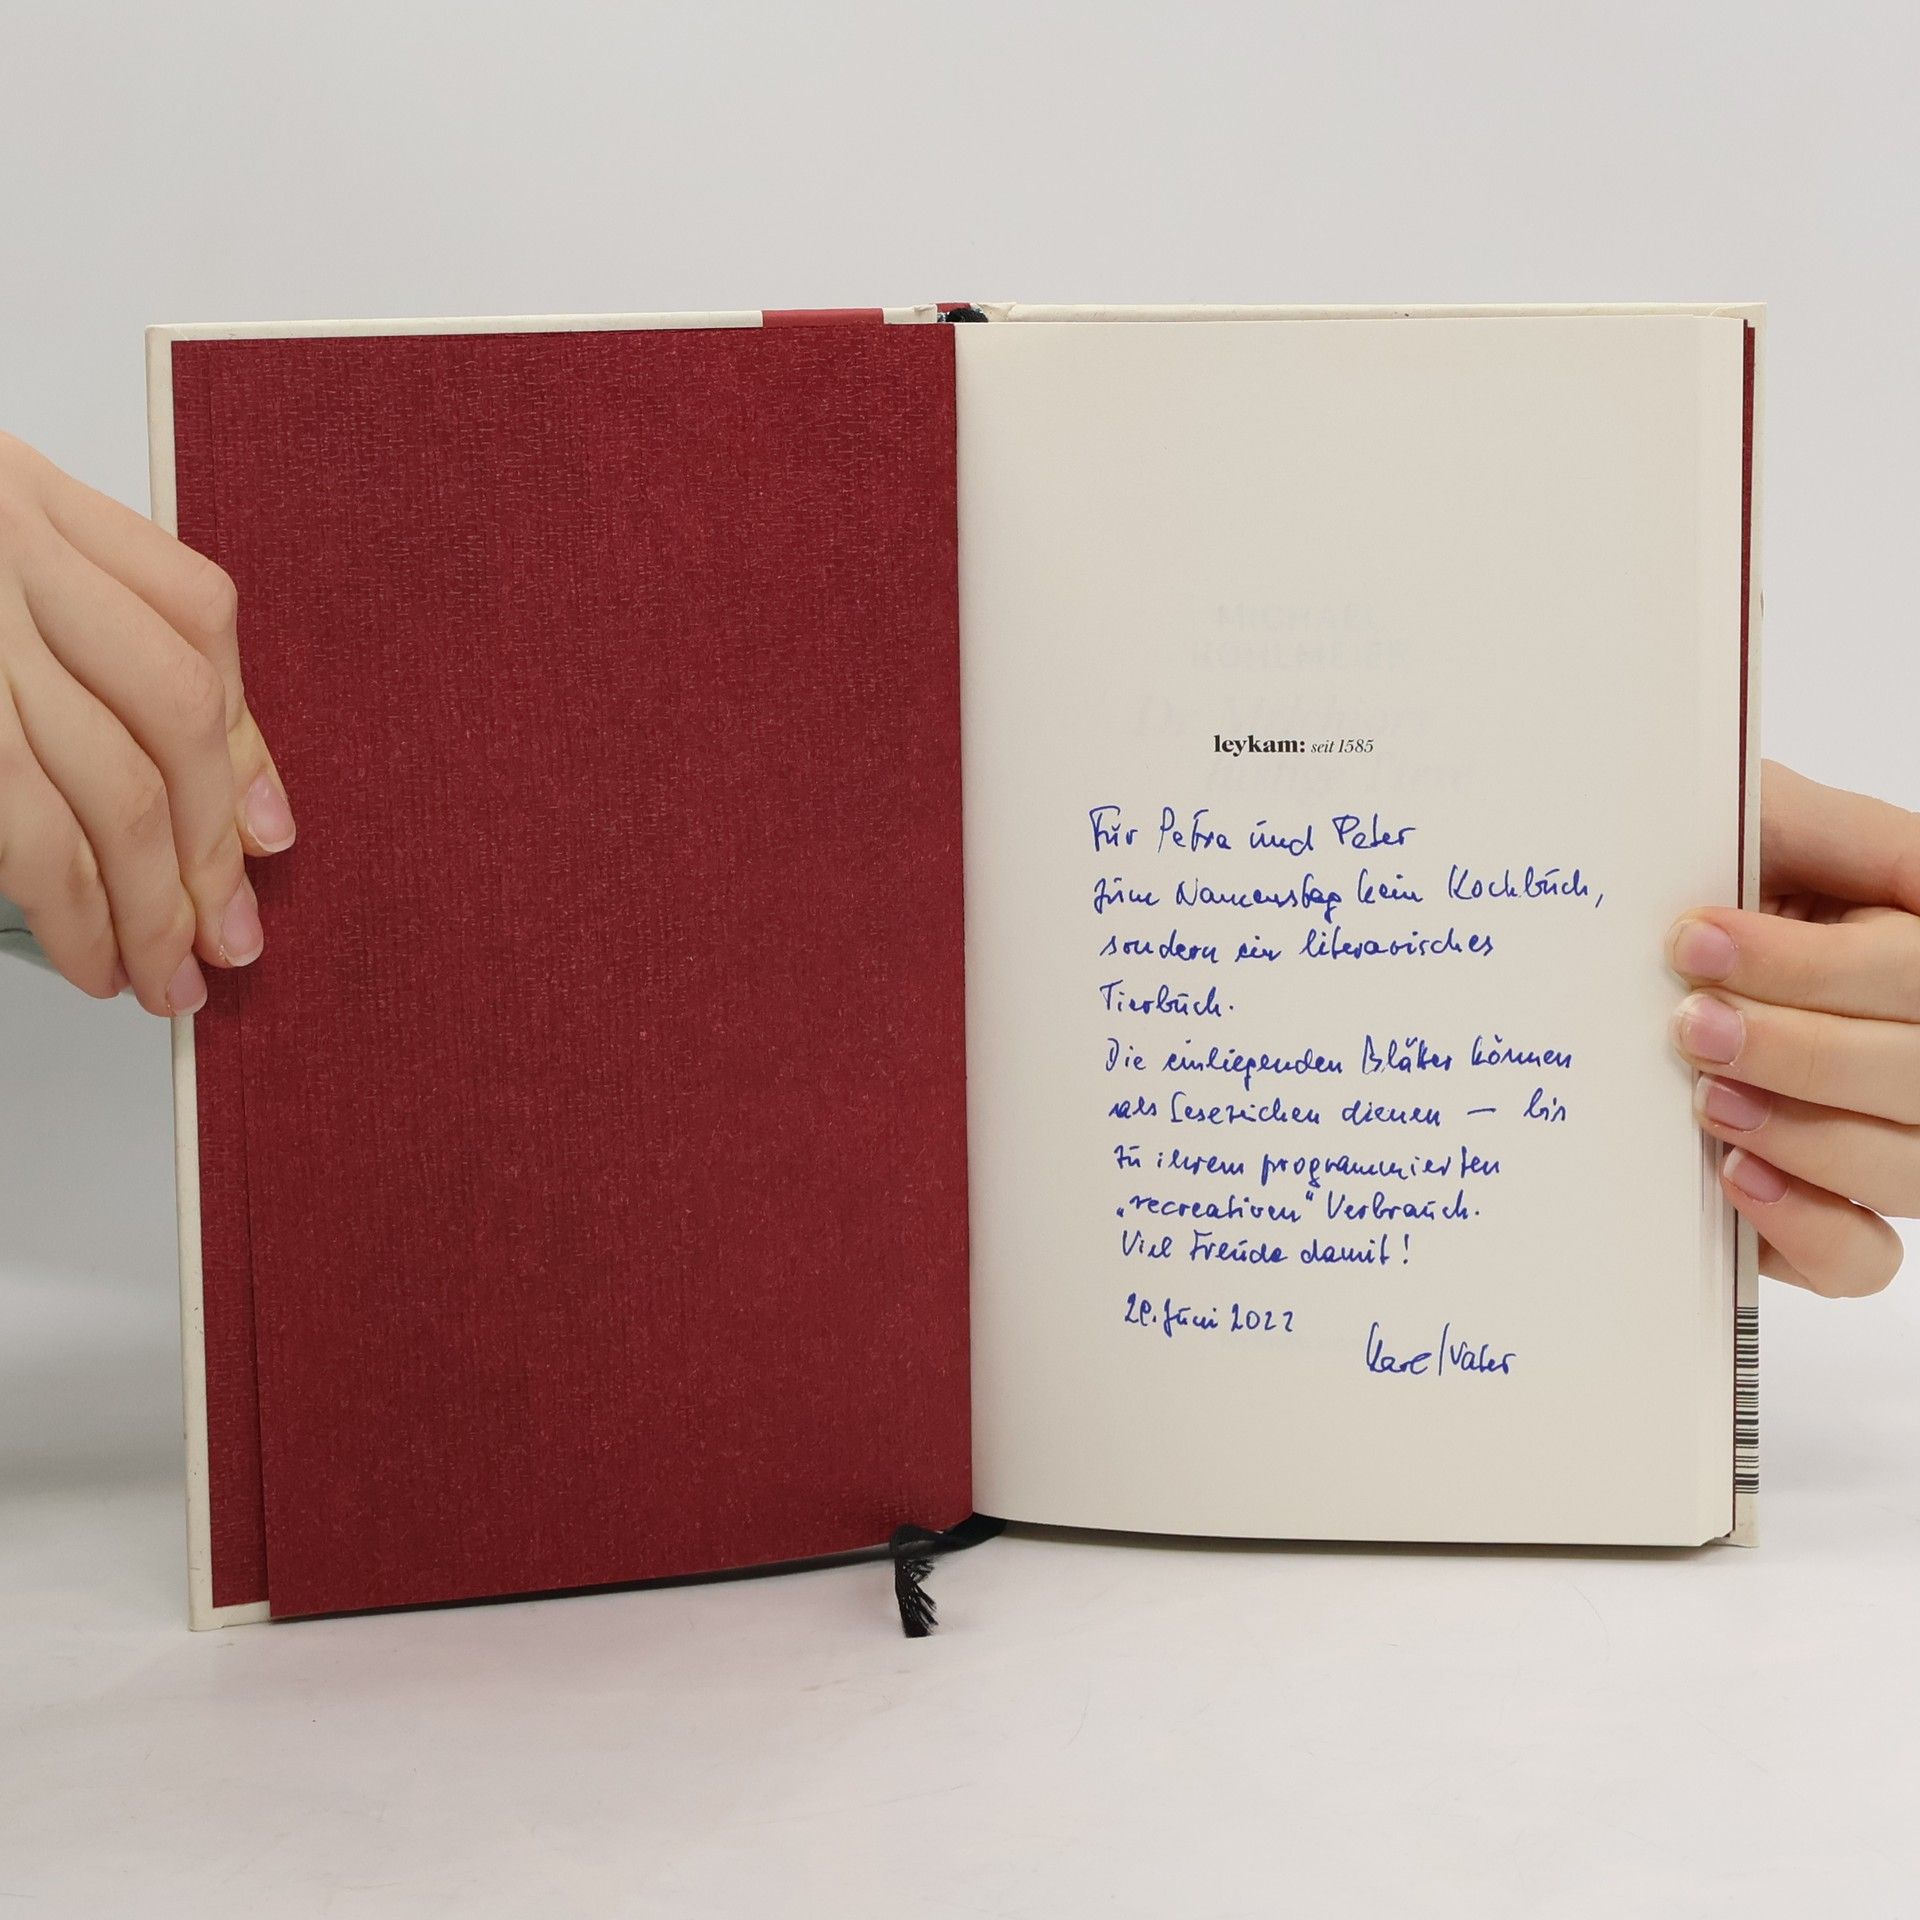 leykam: seit 1585
Für Petra und Peter
zum Namenstag kein Kochbuch,
sondern ein literarisches
Tierbuch.
Die einliegenden Blätter können
als Lesezeichen dienen – bis
zu ihrem programmierten
„recreativen“ Verbrauch.
Viel Freude damit!
Juni 2022
Karl/Vater